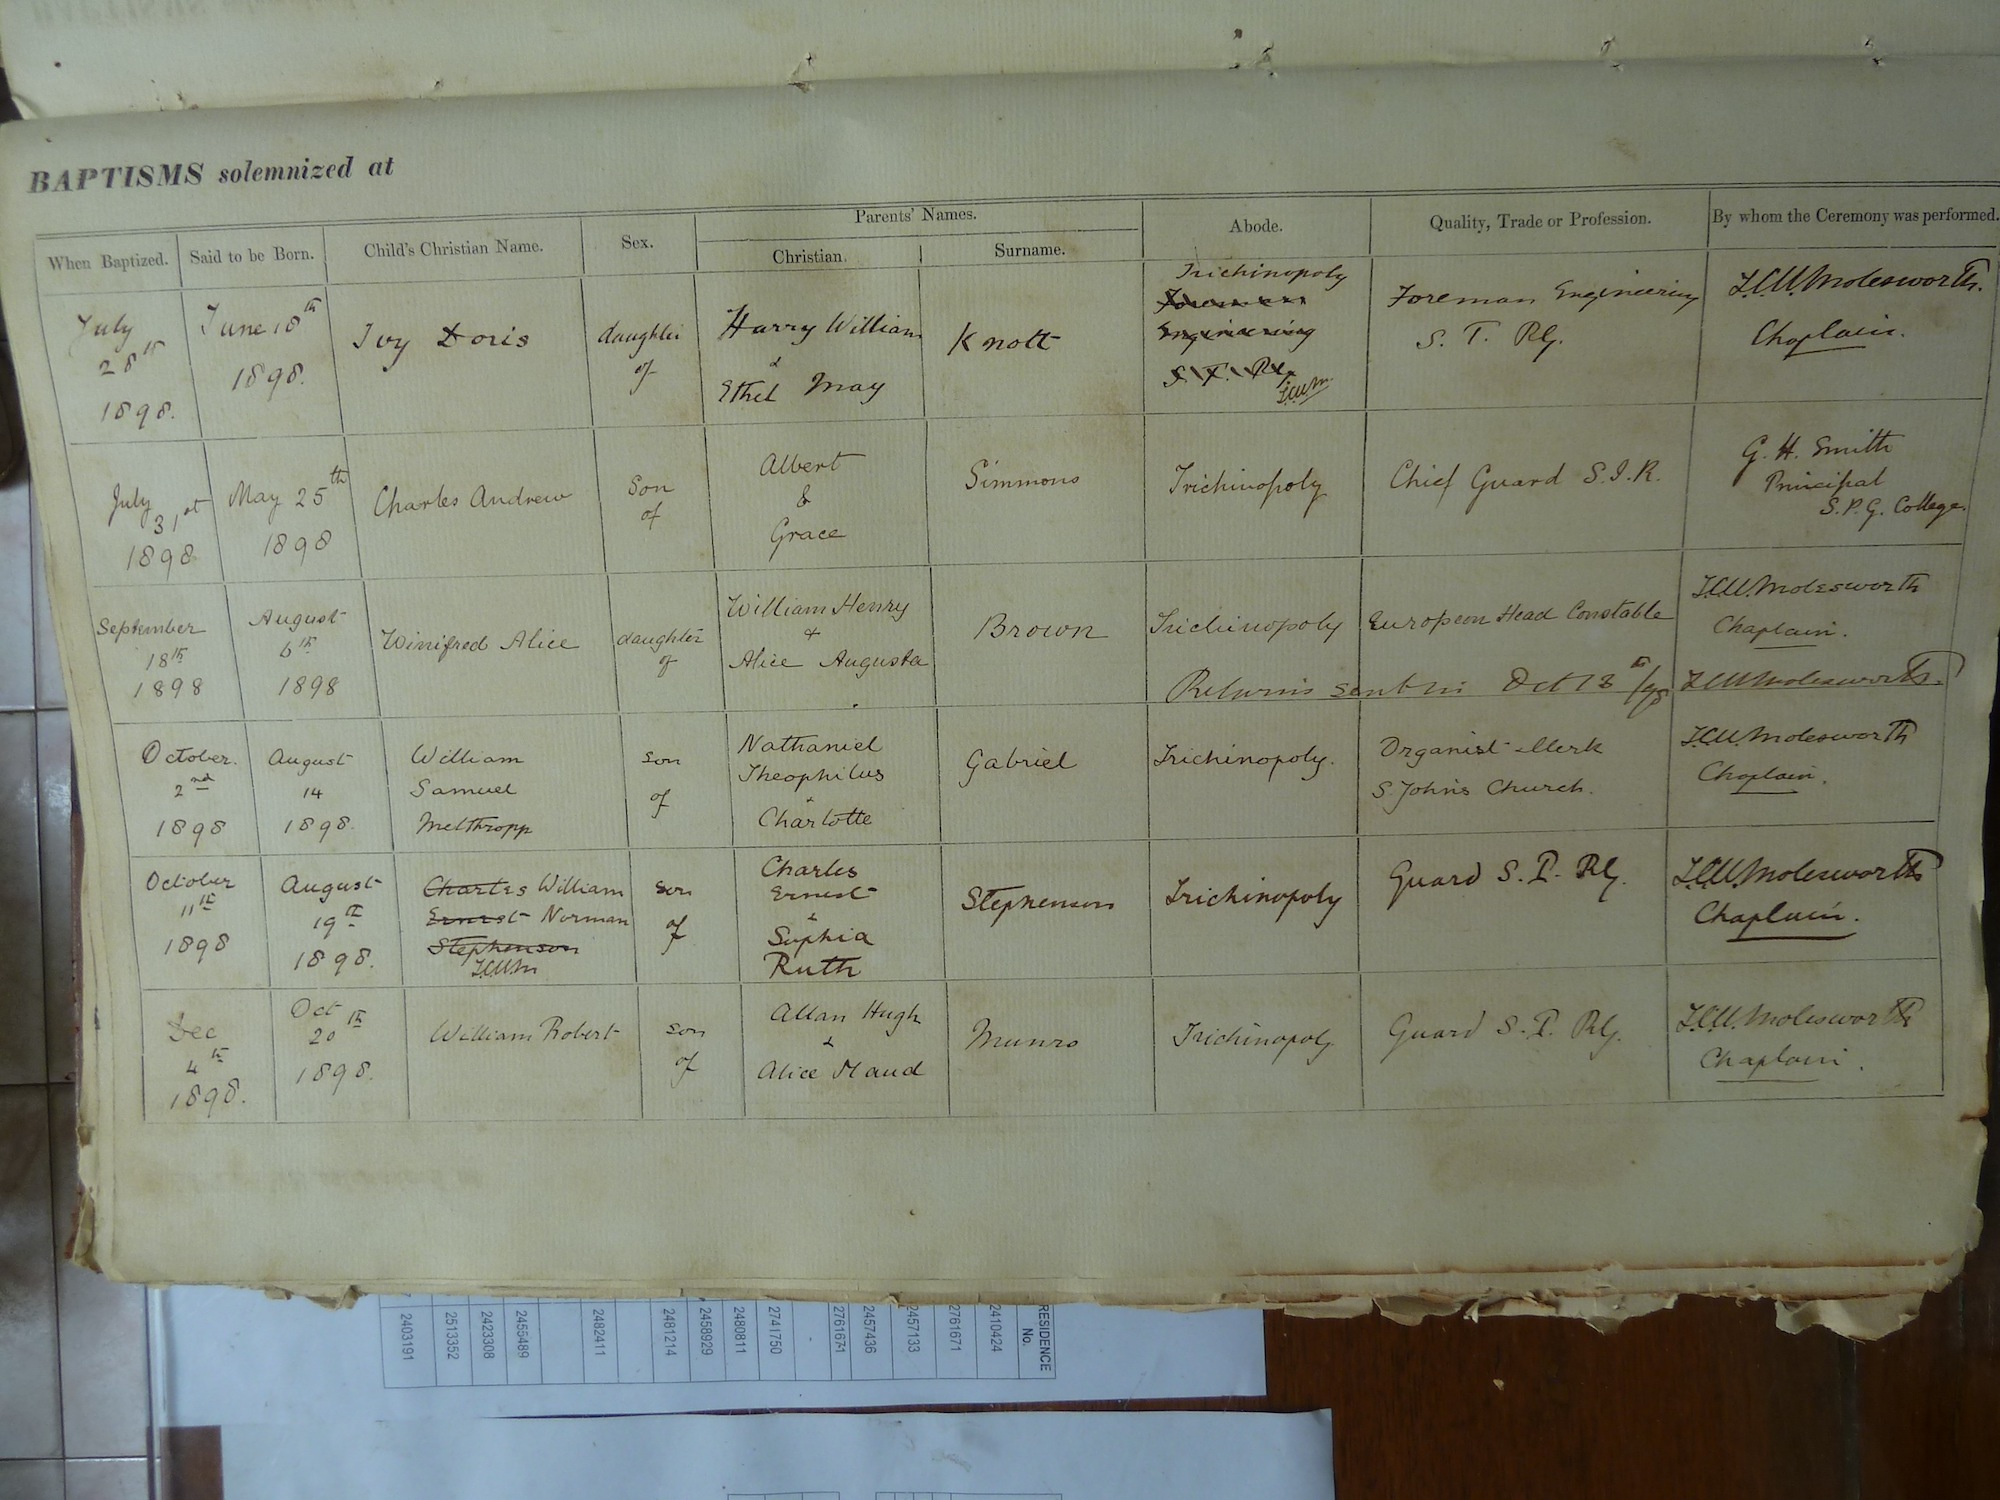 BAPTISMS solemnized at
When Baptized.
Said to be Born.
Child's Christian Name.
Sex.
Parents' Names.
Christian.
Surname.
Abode.
Quality, Trade or Profession.
By whom the Ceremony was performed.
July
28th
1898.
June 18th
1898.
Ivy Doris
daughter
of
Harry William
&
Ethel May
Knott
Trichinopoly
Foreman
Engineering
S. I. Rly.
Foreman Engineering
S. I. Rly.
Molesworth.
Chaplain.
July
31st
1898
May 25th
1898
Charles Andrew
Son
of
Albert
&
Grace
Simmons
Trichinopoly
Chief Guard S.I.R.
G. H. Smith
Principal
S.P.G. College.
September
18th
1898
August
6th
1898
Winifred Alice
daughter
of
William Henry
+
Alice Augusta
Brown
Trichinopoly
European Head Constable
Molesworth
Chaplain.
Returns sent in Oct 13th/98 Molesworth.
October.
2nd
1898
August
14
1898.
William
Samuel
Melthropp
son
of
Nathaniel
Theophilus
&
Charlotte
Gabriel
Trichinopoly.
Organist-Clerk
S. John's Church.
Molesworth
Chaplain.
October
11th
1898
August
19th
1898.
Charles William
Ernest Norman
Stephenson
son
of
Charles
Ernest
&
Sophia
Ruth
Stephenson
Trichinopoly
Guard S. I. Rly.
Molesworth
Chaplain.
Dec
4th
1898.
Oct
20th
1898.
William Robert
son
of
Allan Hugh
&
Alice Maud
Munro
Trichinopoly
Guard S. I. Rly.
Molesworth
Chaplain.
RESIDENCE
No.
2410424
2761671
2457133
2457436
2761671
2741750
2480811
2458929
2481214
2482411
2455489
2423308
2513352
2403191